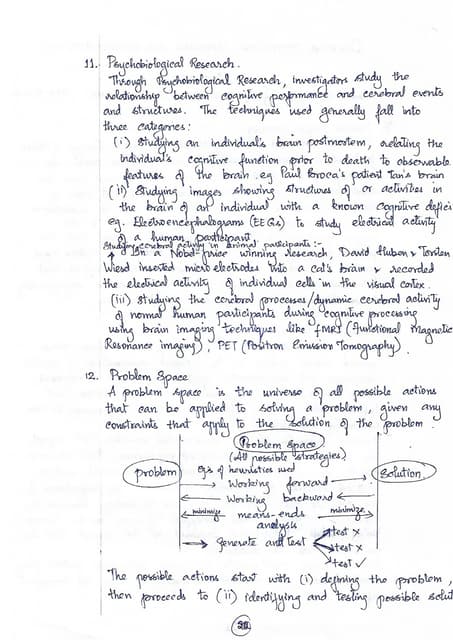 11. Psychobiological Research.
Through Psychobiological Research, investigators study the
relationship between cognitive performance and cerebral events
and structures. The techniques used generally fall into
three categories:
(i) Studying an individual's brain postmortem, relating the
individual's cognitive function prior to death to observable
features of the brain. eg Paul Broca's patient Tan's brain
(ii) Studying images showing structures of or activities in
the brain of an individual with a known cognitive defici
eg. Electroencephalograms (EEGs) to study electrical activity
of a human participant
Studying cerebral activity in animal participants :-
In a Nobel-prize winning research, David Hubon & Torsten
Wiesel inserted microelectrodes into a cat's brain & recorded
the electrical activity of individual cells in the visual cortex.
(iii) Studying the cerebral processes/dynamic cerebral activity
of normal human participants during cognitive processing
using brain imaging techniques like fMRI (Functional Magnetic
Resonance imaging), PET (Positron Emission Tomography).
12. Problem Space
A problem space is the universe of all possible actions
that can be applied to solving a problem, given any
constraints that apply to the solution of the problem.
Problem Space
(All possible strategies)
Problem
Egs of heuristics used
Solution
Working forward
Working backward
minimize means-ends minimize
analysis
generate and test
test x
test x
test ✓
The possible actions start with (i) defining the problem,
then proceeds to (ii) identifying and testing possible solut